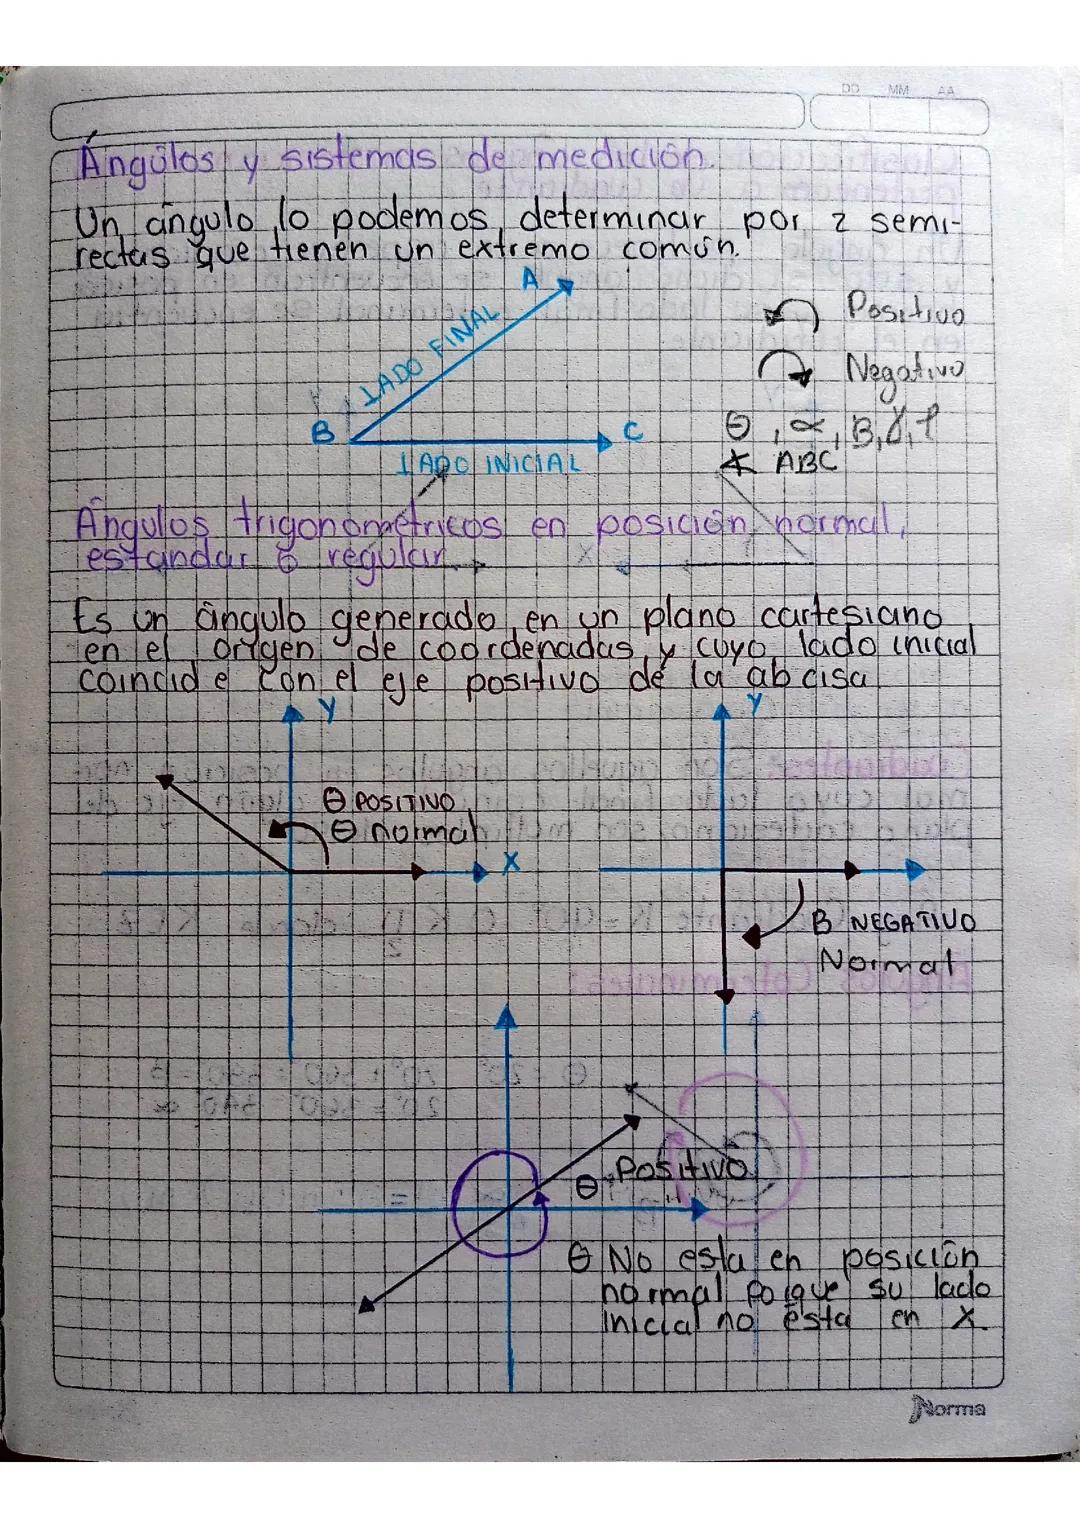 DD MM AA
Ángulos y sistemas de medición.
Un ángulo lo podemos determinar por 2 semi-
rectas que tienen un extremo común.
A
LADO FINAL
B
C
LADO INICIAL
Positivo
Negativo
θ, α, B, γ,
∡ ABC
Ángulos trigonométricos en posición normal,
estandar ó regular.
Es un ángulo generado en un plano cartesiano
en el origen de coordenadas y cuyo lado inicial
coincide con el eje positivo de la abcisa
Y
θ POSITIVO
θ normal
X
Y
B NEGATIVO
Normal
θ Positivo
θ No esta en posición
normal porque su lado
inicial no esta en X.
Norma